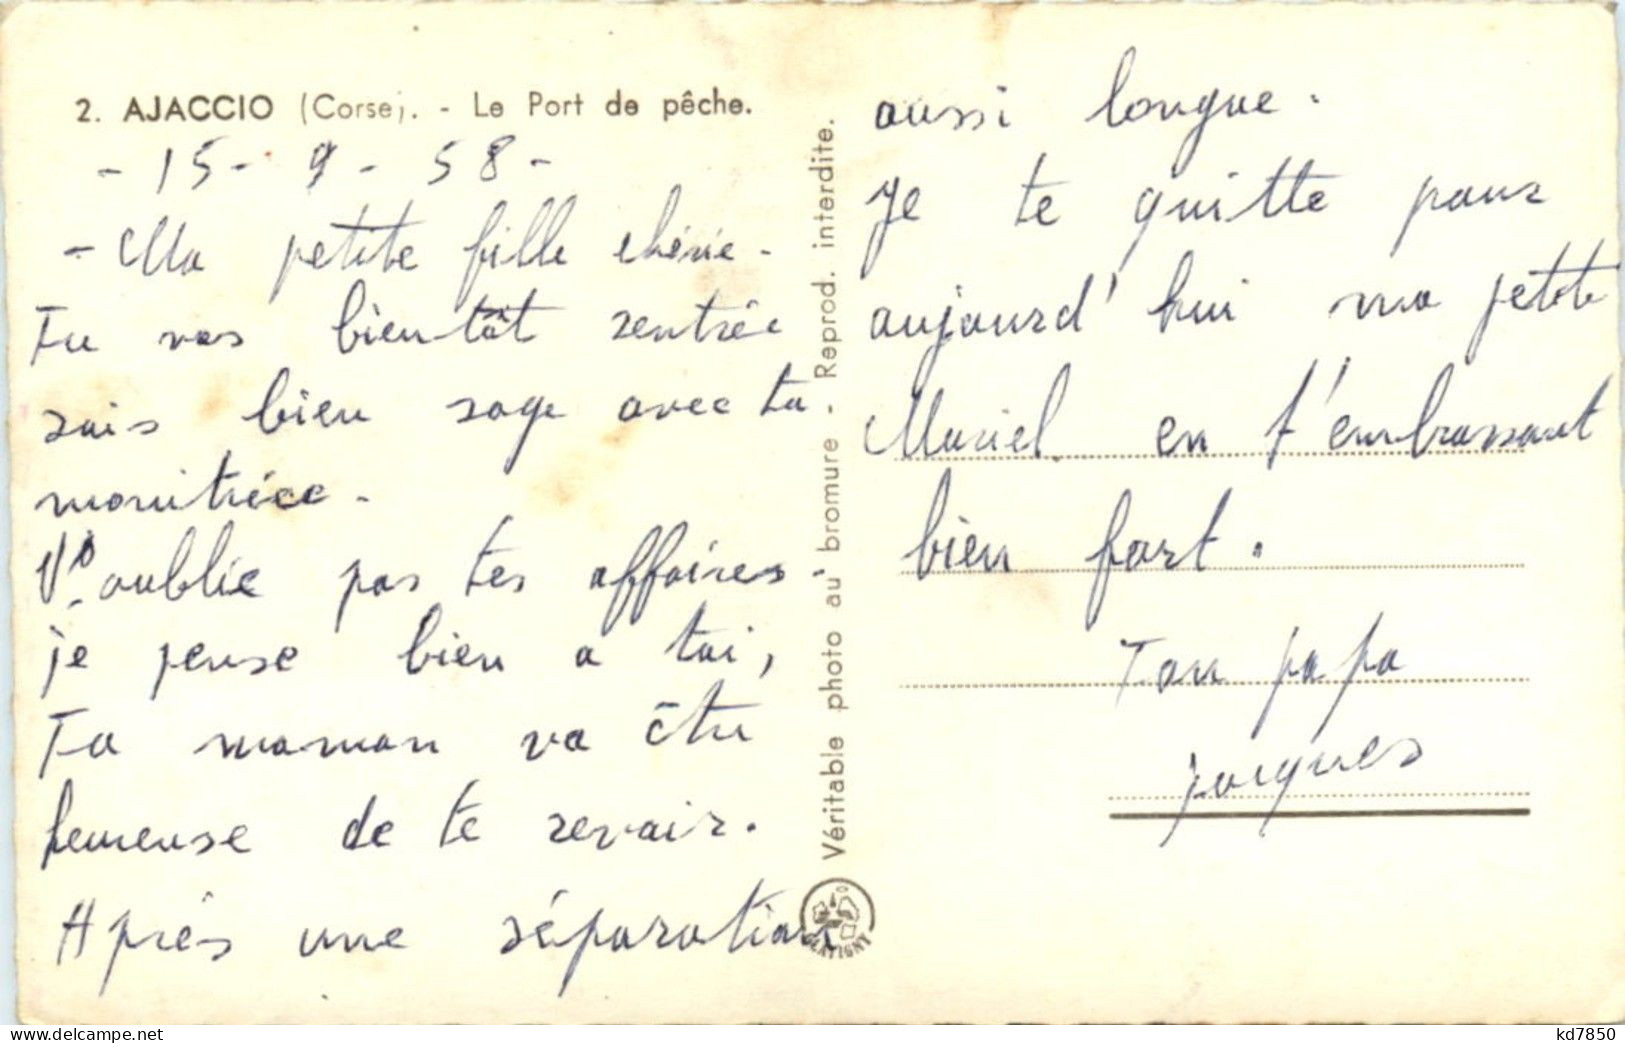 2. AJACCIO (Corse). - Le Port de pêche.
- 15 - 9 - 58 -
- Ma petite fille chérie -
Tu vas bientôt rentrée
sois bien sage avec ta
monitrice -
N'oublie pas tes affaires -
je pense bien a toi,
Ta maman va être
heureuse de te revoir.
Après une séparation
Véritable photo au bromure - Reprod. interdite.
aussi longue.
Je te quitte pour
aujourd'hui ma petite
Muriel. en t'embrassant
bien fort.
Ton papa
Jacques
www.delcampe.net
kd7850